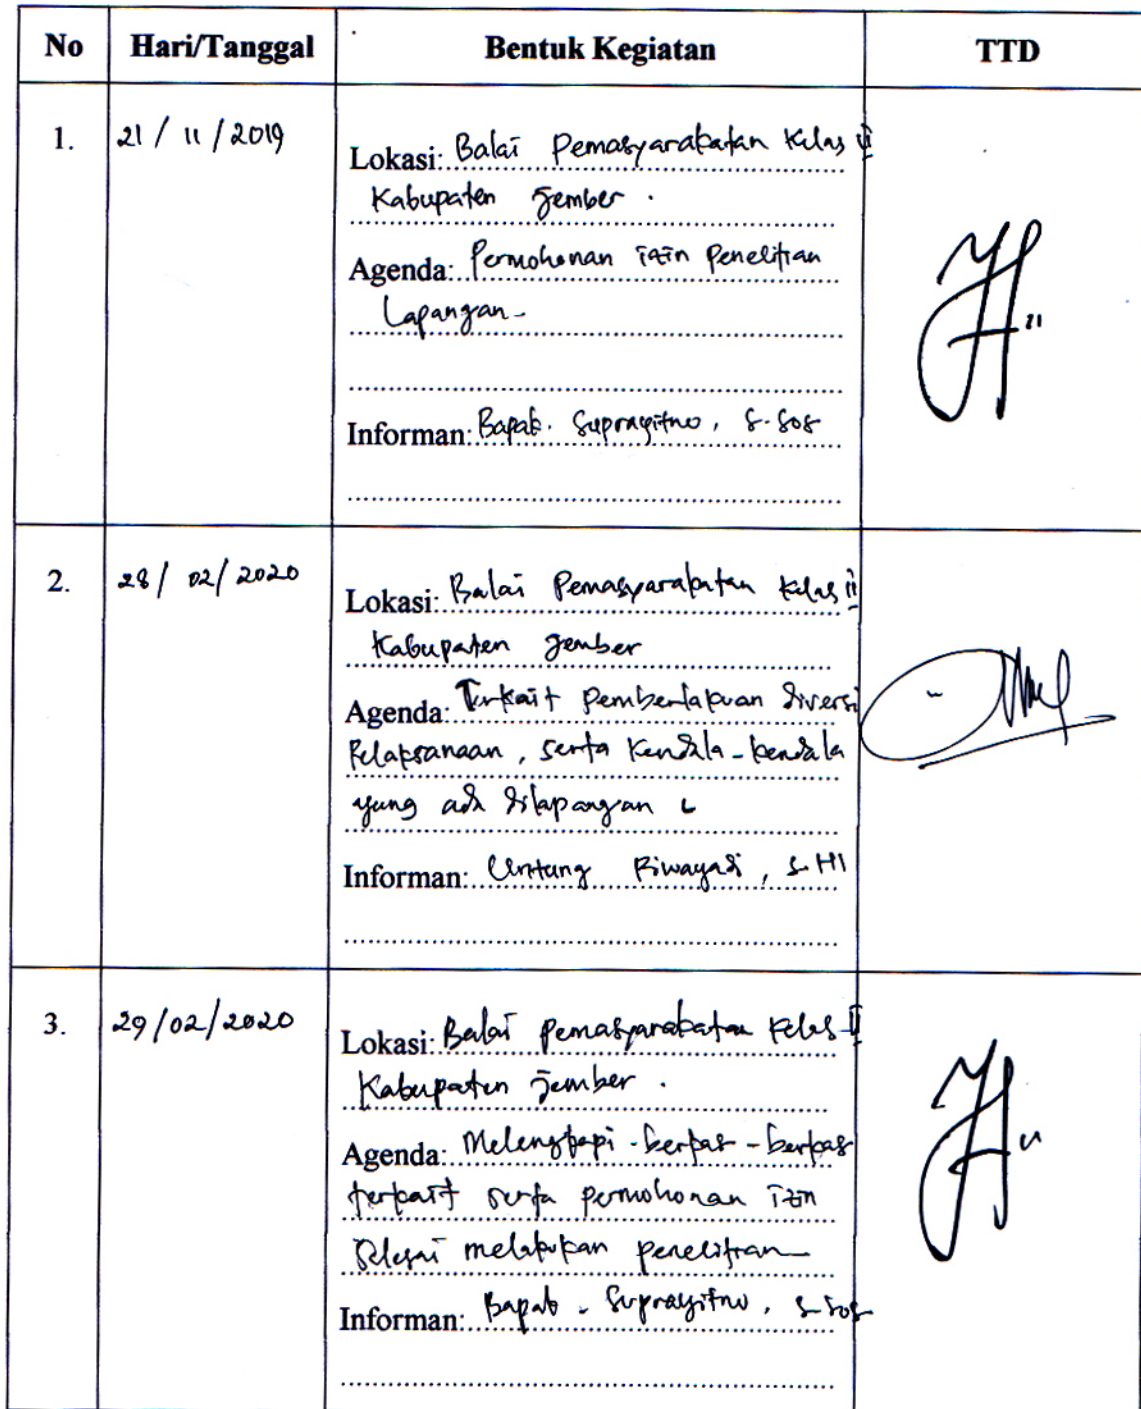 No Hari/Tanggal Bentuk Kegiatan TTD
1. 21 / 11 / 2019
Lokasi: Balai Pemasyarakatan Kelas II
Kabupaten Jember .
Agenda: Permohonan izin Penelitian
Lapangan-
Informan: Bapak. Suprayitno, S.Sos
2. 28 / 02 / 2020
Lokasi: Balai Pemasyarakatan Kelas II
Kabupaten Jember
Agenda: Terkait Pemberlakuan diversi
Pelaksanaan, serta Kendala-kendala
yang ada dilapangan
Informan: Untung Riwayadi, S.HI
3. 29/02/2020
Lokasi: Balai Pemasyarakatan Kelas II
Kabupaten Jember .
Agenda: Melengkapi -berkas-berkas
terkait serta permohonan izin
Selesai melakukan penelitian
Informan: Bapak. Suprayitno, S.Sos